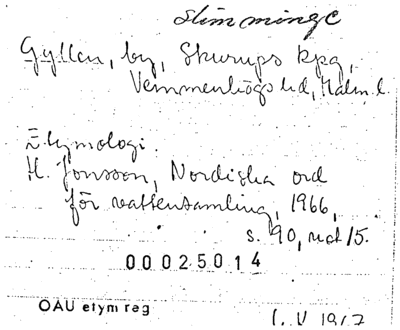 Slimminge
Gyllen, by, Skurups kpg,
Vemmenhögs hd, Malm. l.
Etymologi.
H. Jonsson, Nordiska ord
för vattensamling, 1966,
s. 90, not 15.
00025014
OAU etym reg